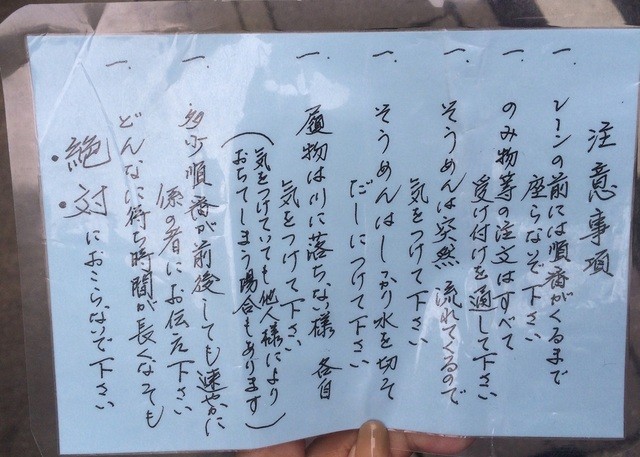 注意事項
一、レーンの前には順番がくるまで
座らないで下さい
一、のみ物等の注文はすべて
受け付けを通して下さい
一、そうめんは突然流れてくるので
気をつけて下さい
一、そうめんはしっかり水を切って
だしにつけて下さい
一、履物は川に落ちない様 各自
気をつけて下さい
(気をつけていても他人様により
おちてしまう場合もあります)
一、多少順番が前後しても速やかに
係の者にお伝え下さい
一、どんなに待ち時間が長くなっても
絶対におこらないで下さい